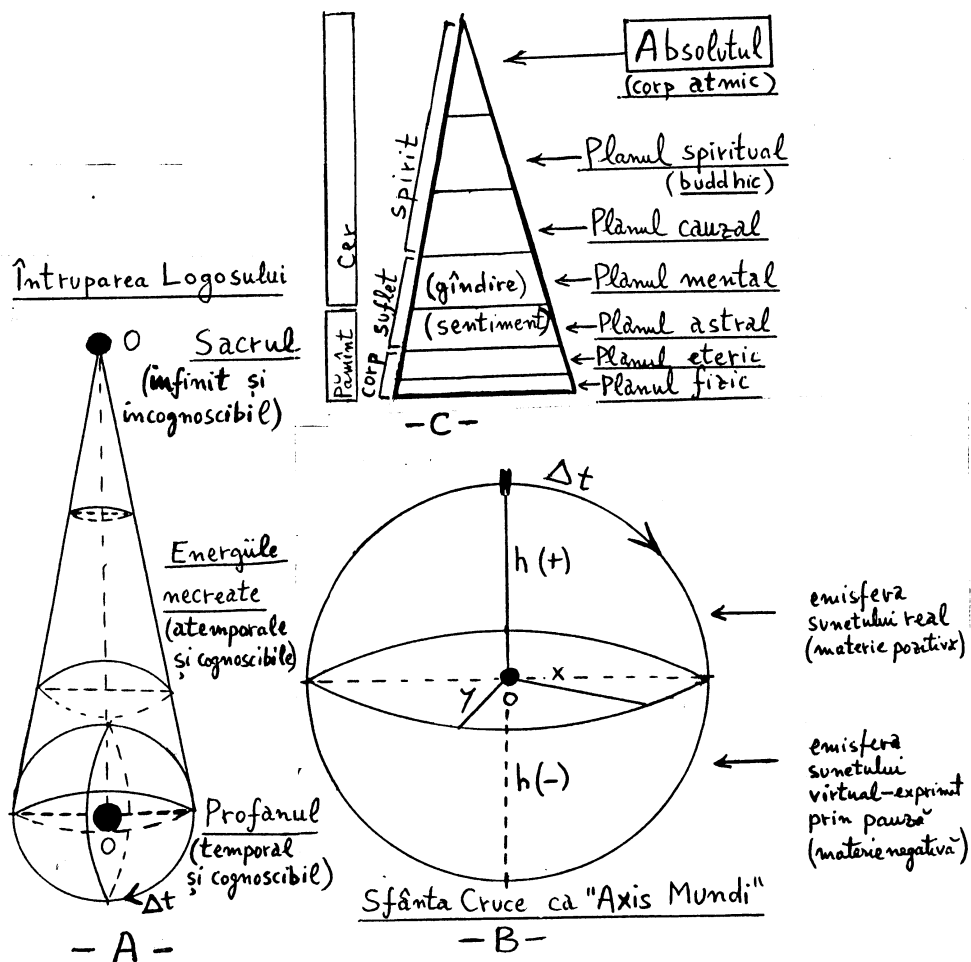 Absolutul
(corp atmic)
Planul spiritual
(buddhic)
Planul cauzal
Planul mental
Planul astral
Planul eteric
Planul fizic
Cer
Pămînt
spirit
suflet
corp
(gîndire)
(sentiment)
- C -
Întruparea Logosului
O
Sacrul
(infinit și
incognoscibil)
Energiile
necreate
(atemporale
și cognoscibile)
Profanul
(temporal
și cognoscibil)
O
Δt
- A -
Δt
h (+)
x
y
O
h(-)
emisfera
sunetului real
(materie pozitivă)
emisfera
sunetului
virtual-exprimat
prin pauză
(materie negativă)
Sfânta Cruce ca "Axis Mundi"
- B -